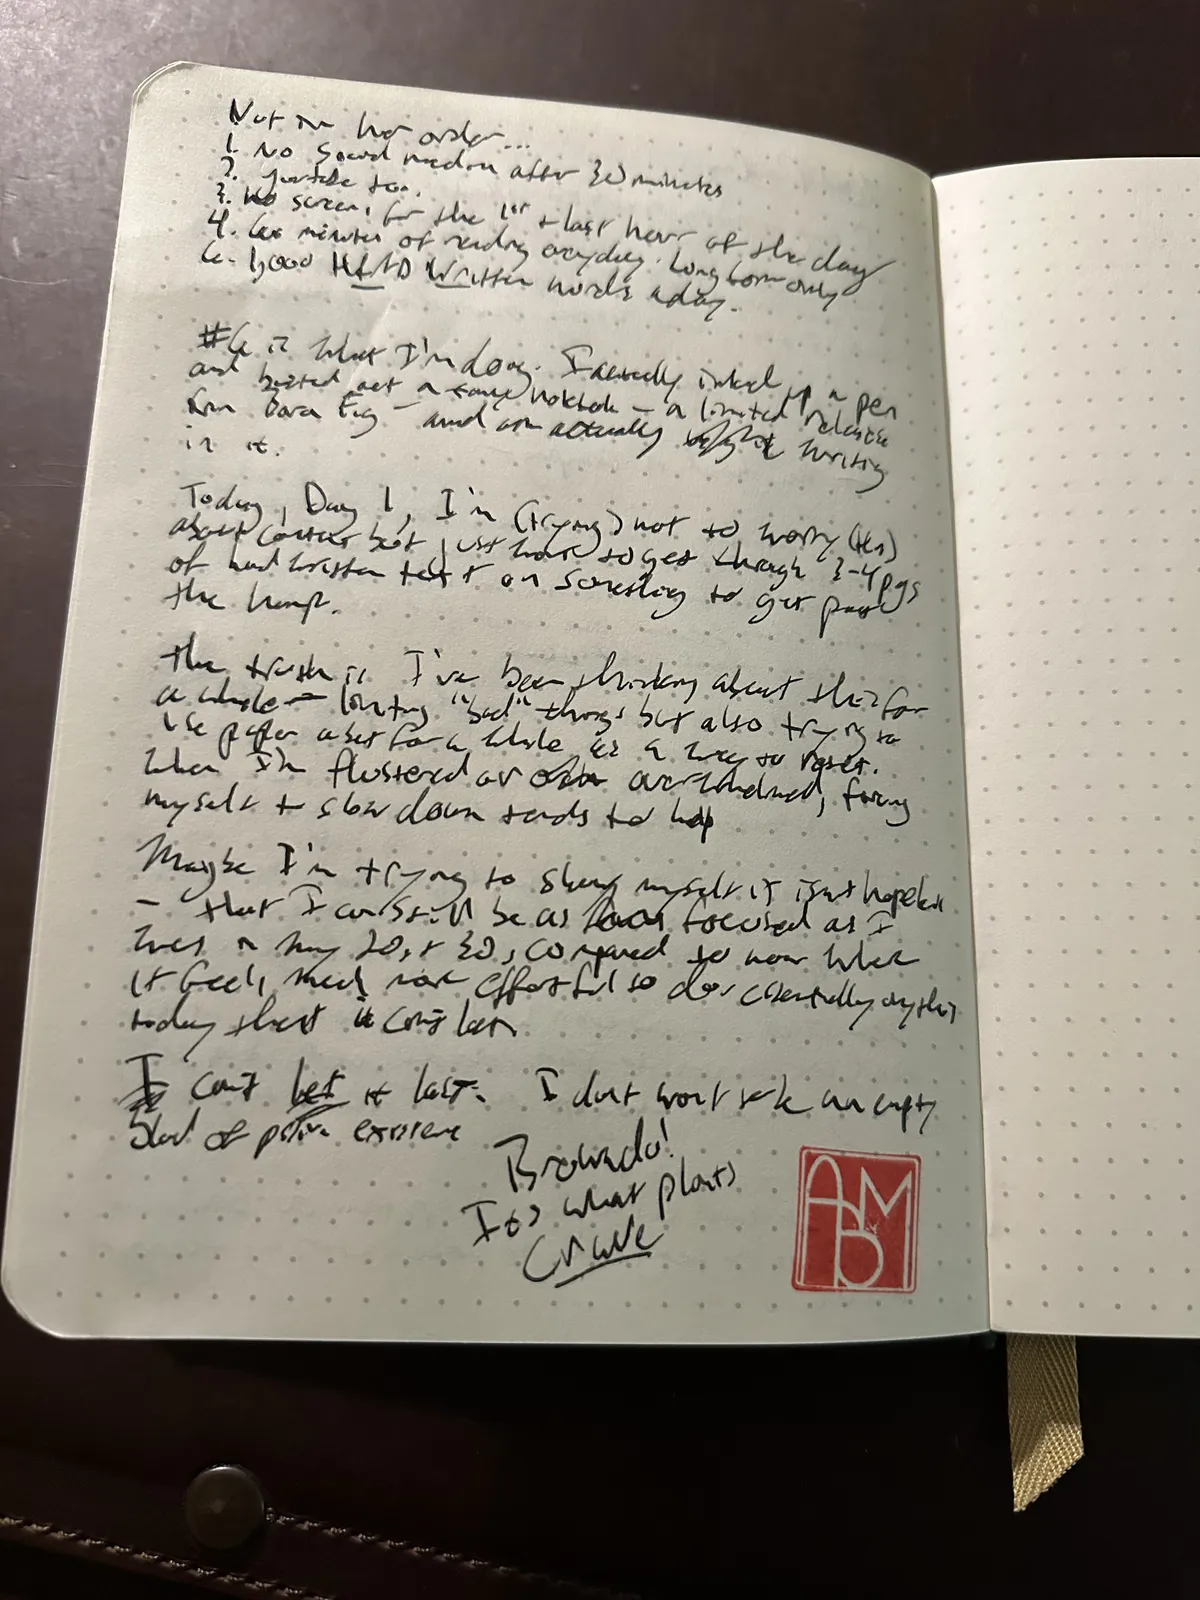 Not in her order...
1. No Social media after 30 minutes
2. Youtube too.
3. No screens for the 1st + last hour of the day
4. 60 minutes of reading everyday. Long form only
6. 1,000 HAND Written words a day.
#6 is what I'm doing. I actually inked up a pen
and busted out a fancy notebook - a limited release
from Baron Fig - and am actually writing
in it.
Today, Day 1, I'm (trying) not to worry
about content but just have to get through 3-4 pgs
of handwritten text on something to get past
the hump.
The truth is I've been thinking about this for
a while - limiting "bad" things but also trying to
use paper a bit for a while as a way to reset.
When I'm flustered or overwhelmed, forcing
myself to slow down tends to help
Maybe I'm trying to show myself it isn't hopeless
- that I can still be as focused as I
was in my 20s + 30s, compared to now when
it feels much more effortful to do essentially anything
today that it can't last.
I can't let it last. I don't want to be an empty
of passive existence
Brawndo!
It's what plants
Crave
ADM